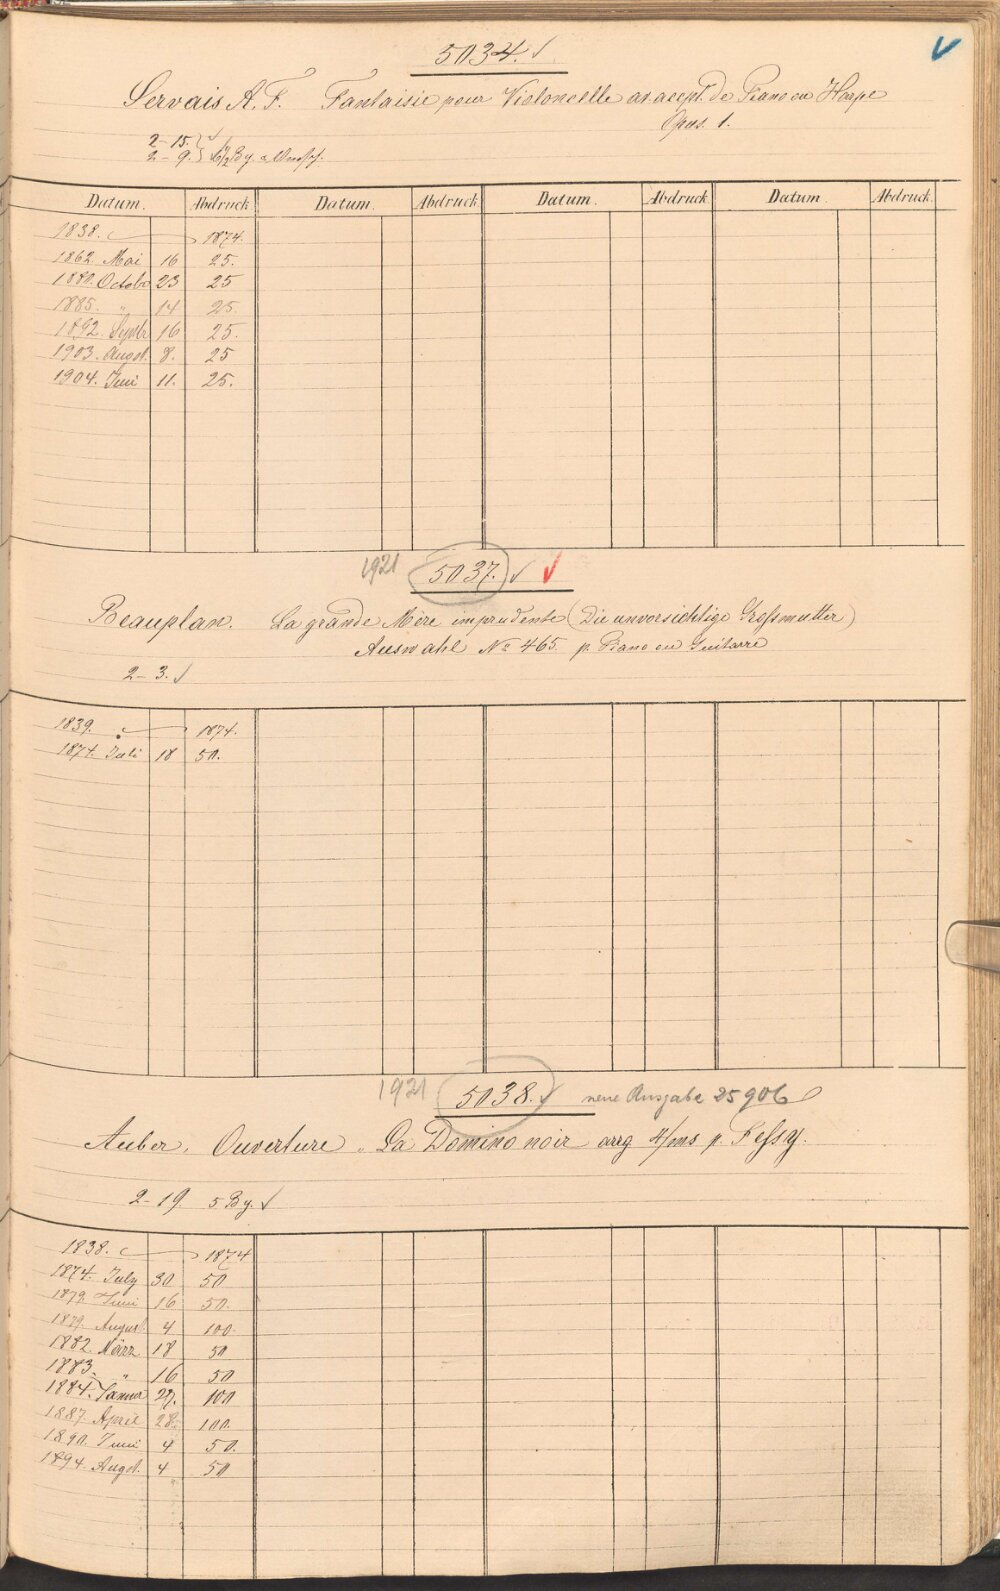 5034. ✓ ✓
Servais A. F. Fantaisie pour Violoncelle av. accpt. de Piano ou Harpe
Opus. 1.
2-15. ✓
2-9.
Datum. Abdruck Datum. Abdruck Datum. Abdruck Datum. Abdruck
1838. 1874.
1862. Mai 16 25.
1880. Octobr 23 25
1885. " 14 25.
1892. Septb 16 25.
1903. Augst. 8. 25
1904. Juni 11. 25.
1921 5037. ✓ ✓
Beauplan. La grande Mère imprudente (Die unvorsichtige Grossmutter)
Auswahl No 465. p. Piano ou Guitarre
2-3. ✓
1839. 1874.
1874. Juli 18 50.
1921 5038. ✓ neue Ausgabe 25906
Auber. Ouverture „La Domino noir arrg 4/ms p. Fessy.
2-19. 5 Bg. ✓
1838. 1874
1874. July 30 50
1879. Juni 16 50.
1879. August 4 100.
1882. März 18 50
1883. " 16 50
1884. Jänner 22. 100
1887. April 28. 100.
1890. Juni 4 50.
1894. Augst. 4 50